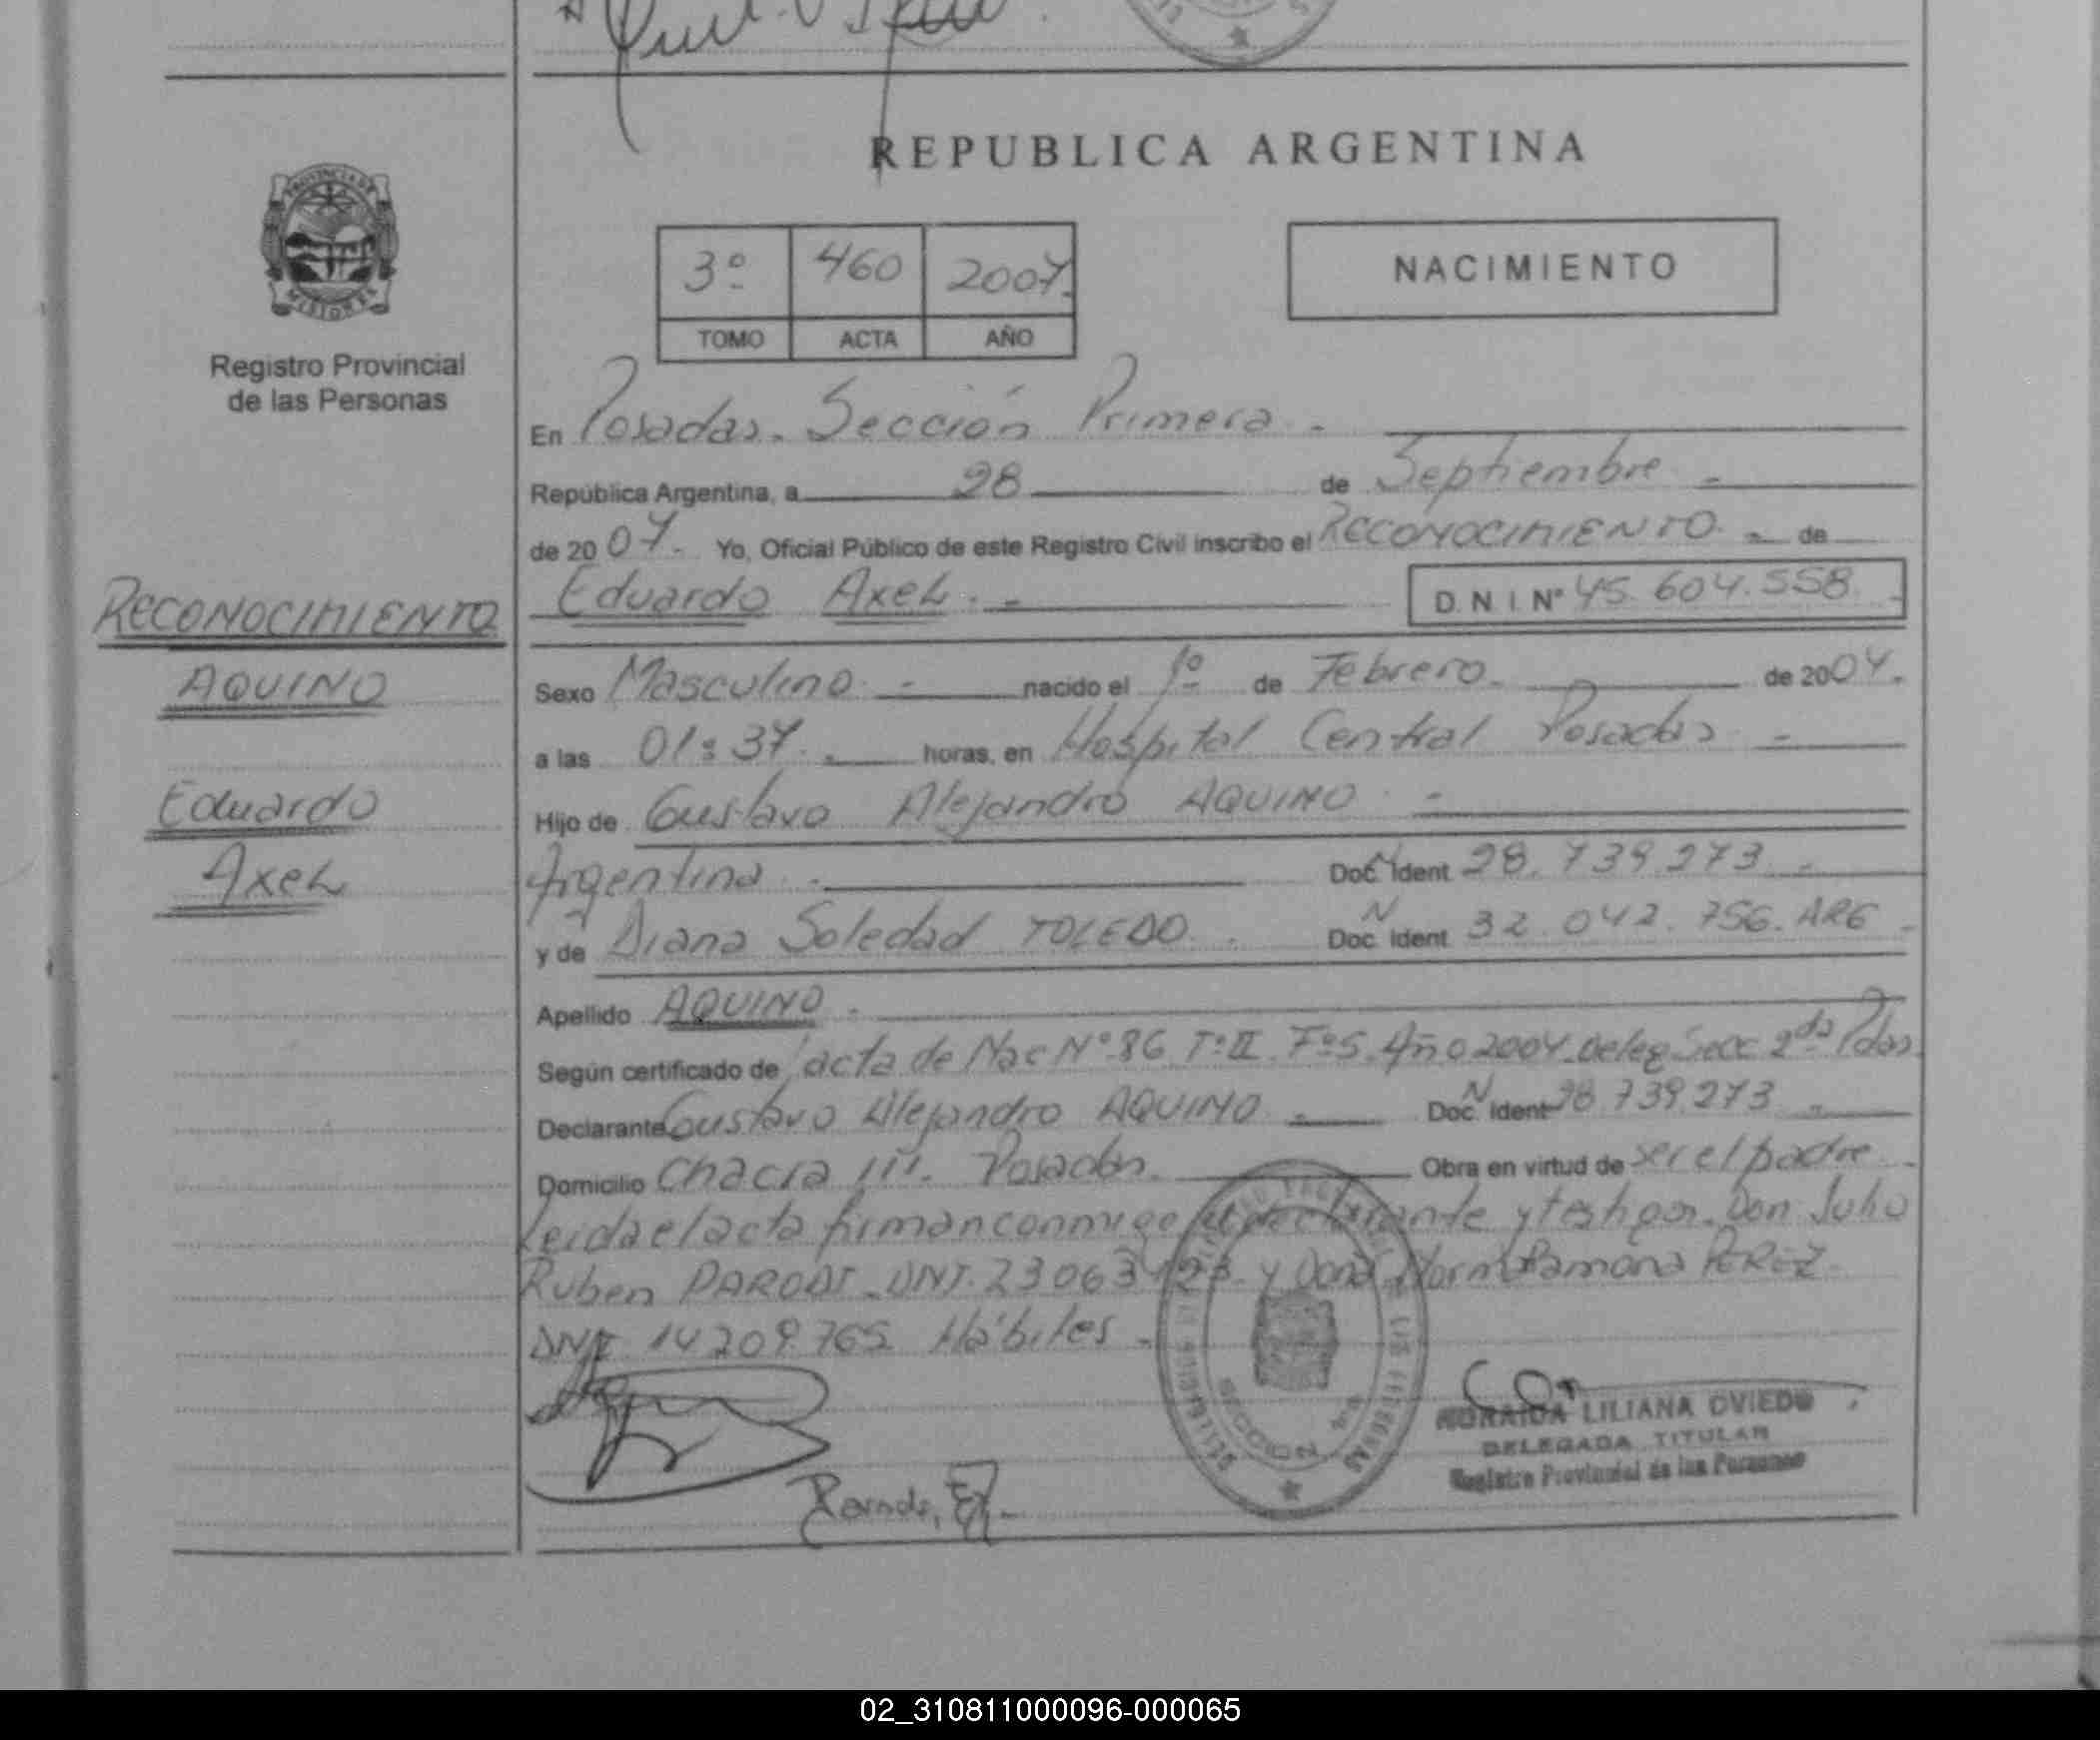 REPUBLICA ARGENTINA
PROVINCIA DE
MISIONES
Registro Provincial
de las Personas
3º 460 2007.
TOMO ACTA AÑO
NACIMIENTO
En Posadas. Sección Primera -
República Argentina, a 28 de Septiembre -
de 2007. Yo, Oficial Público de este Registro Civil inscribo el RECONOCIMIENTO. - de
Eduardo Axel. - D.N.I. Nº 45.604.558.
RECONOCIMIENTO
AQUINO
Eduardo
Axel
Sexo Masculino - nacido el 1º de Febrero. de 2004.
a las 01:37. - horas, en Hospital Central Posadas -
Hijo de Gustavo Alejandro AQUINO. -
Argentina. - Doc. N Ident 28.739.273. -
y de Diana Soledad TOLEDO. Doc. N Ident 32.042.756. ARG -
Apellido AQUINO. -
Según certificado de acta de Nac Nº 86 Tº II Fº 5. Año 2004 Deleg Secc 2da Pdas.
Declarante Gustavo Alejandro AQUINO - Doc. N Ident 28.739.273 -
Domicilio Chacra 111. Posadas. Obra en virtud de ser el padre -
Leida el acta firman conmigo el declarante y testigos. Don Julio
Ruben PARODI - DNI. y Doña Norma Ramona PEREZ
DNI 14209.765 Hábiles -
SECCION 1ra
LILIANA OVIEDO
DELEGADA TITULAR
Registro Provincial de las Personas
02_310811000096-000065